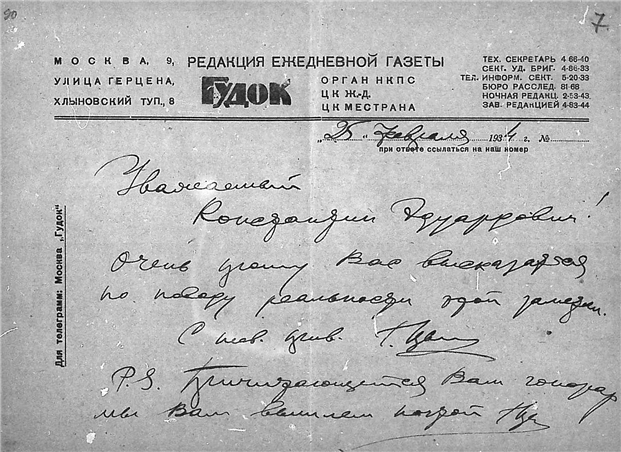 90
7.
МОСКВА, 9,
УЛИЦА ГЕРЦЕНА,
ХЛЫНОВСКИЙ ТУП., 8
РЕДАКЦИЯ ЕЖЕДНЕВНОЙ ГАЗЕТЫ
ГУДОК
ОРГАН НКПС
ЦК Ж.-Д.
ЦК МЕСТРАНА
ТЕХ. СЕКРЕТАРЬ 4-66-40
СЕКТ. УД. БРИГ. 4-86-33
ТЕЛ. ИНФОРМ. СЕКТ. 5-20-33
БЮРО РАССЛЕД. 81-68
НОЧНАЯ РЕДАКЦ. 2-53-43
ЗАВ. РЕДАКЦИЕЙ 4-83-44
„25“ февраля 1934 г. №
при ответе ссылаться на наш номер
Для телеграмм: Москва „Гудок“
Уважаемый
Константин Эдуардович!
Очень прошу Вас высказаться
по поводу реальности этой заметки.
С тов. прив.
P.S. Причитающийся Вам гонорар
мы Вам вышлем почтой